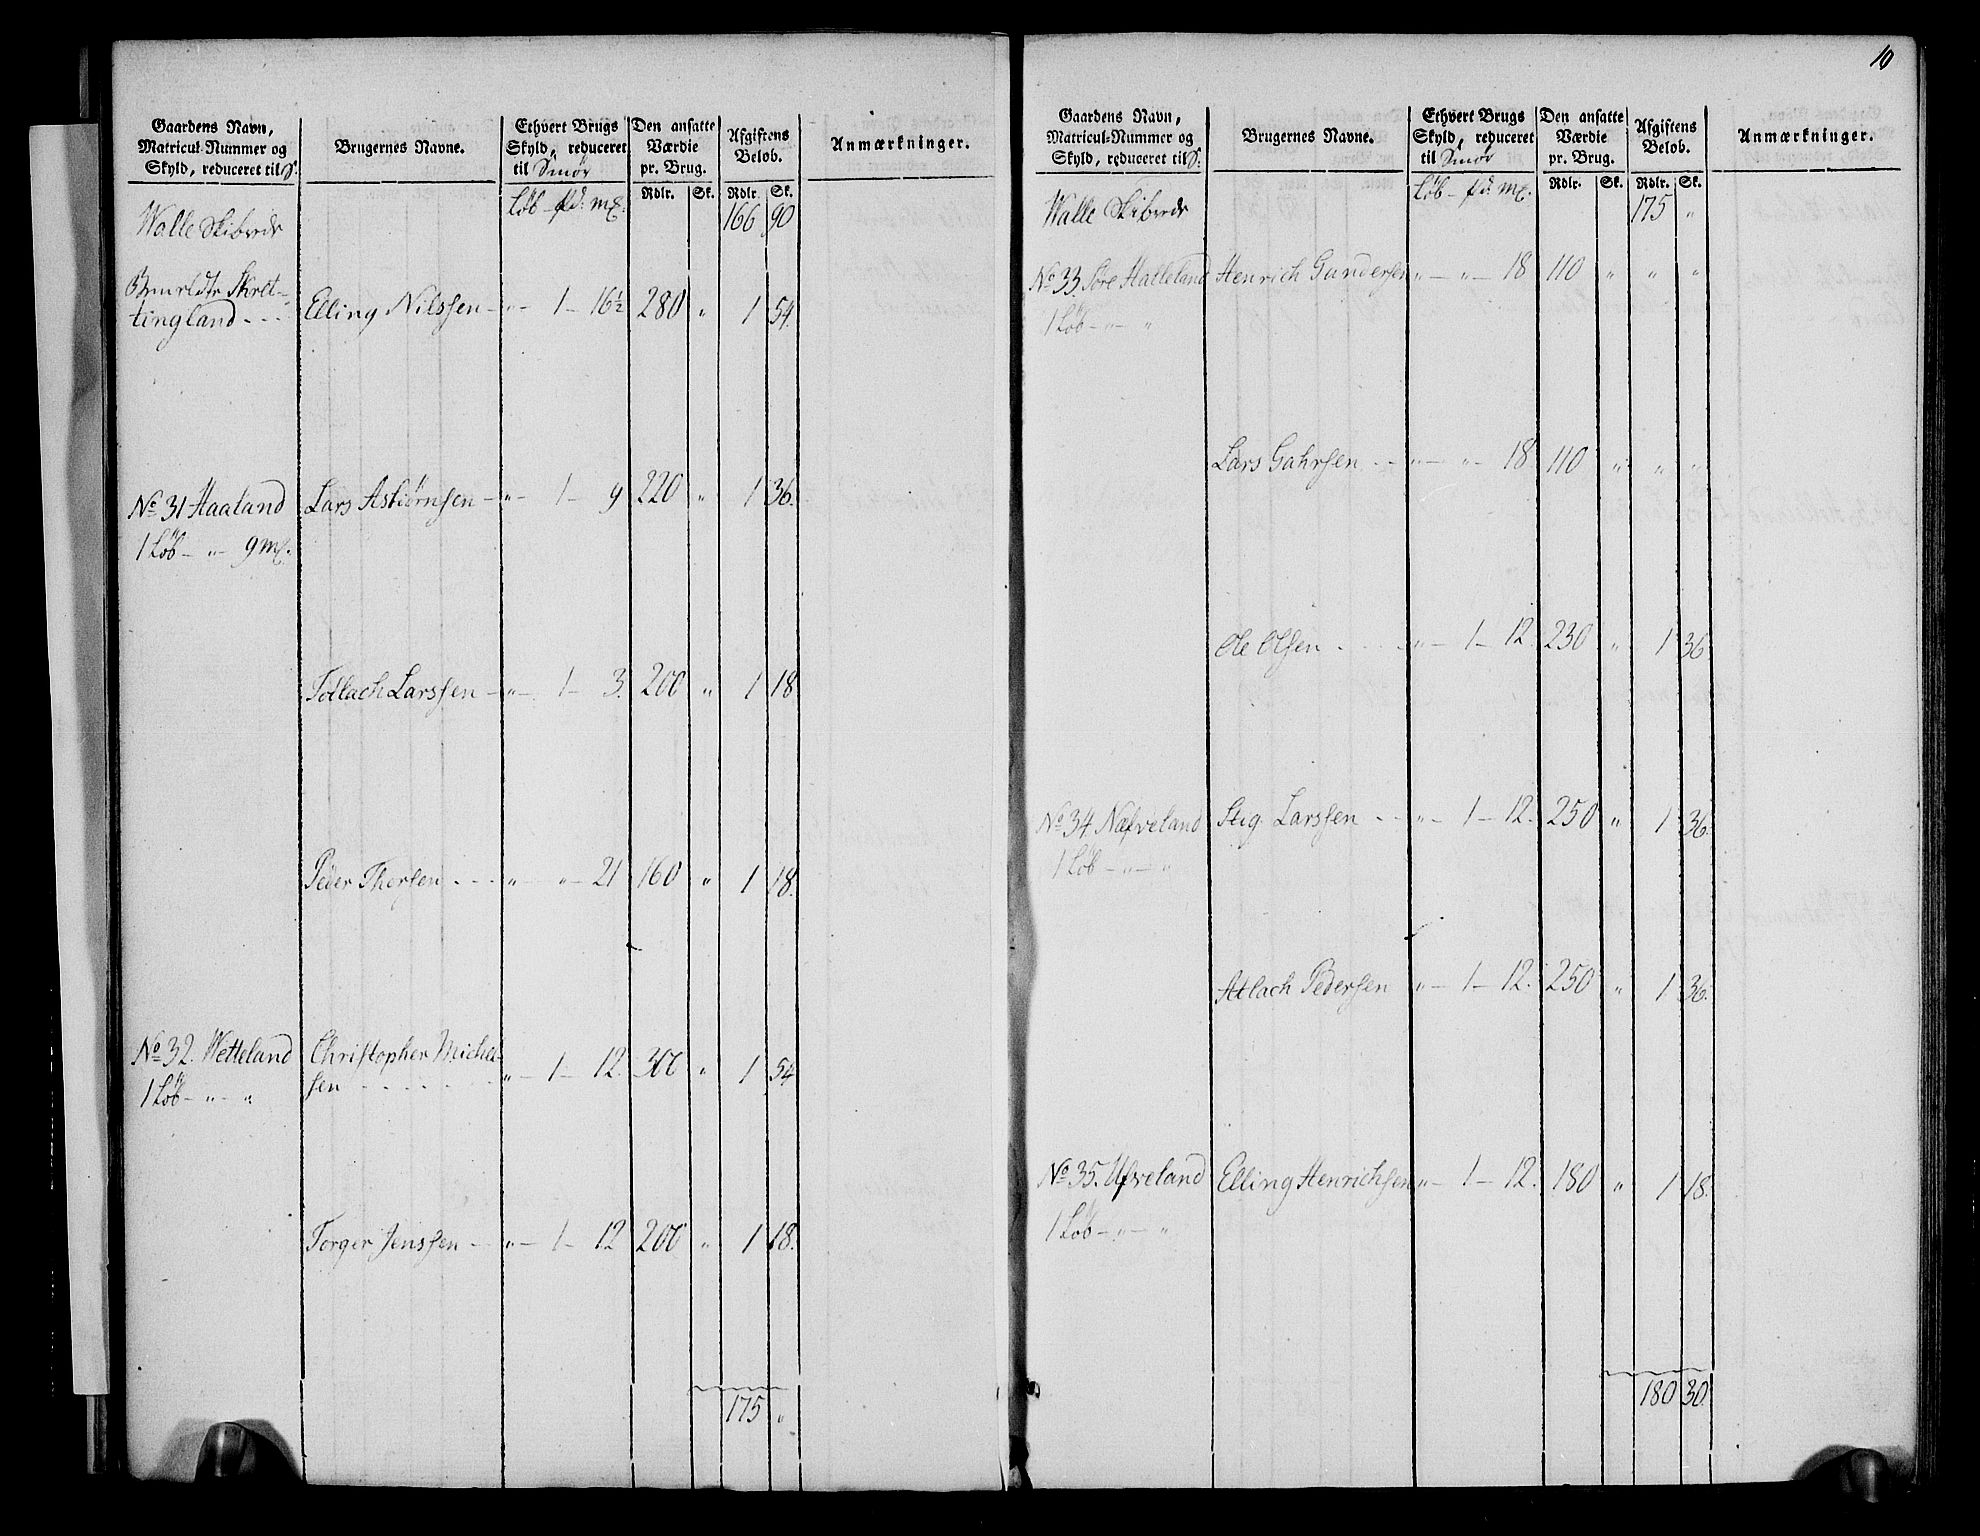 Gaardens Navn, Matricul-Nummer og Skyld, reduceret til S. | Brugernes Navne. | Ethvert Brugs Skyld, reduceret til Smør | Den ansatte Værdie pr. Brug. | Afgiftens Beløb. | Anmærkninger.
Løb - pd: mk. | Rdlr. | Sk. | Rdlr. | Sk.
Walle Skibrede | 166 | 90
Skret-
tingland - - - | Elling Nilssen - | " - 1 - 16½ | 280 | " | 1 | 54.
No 31 Haaland | Lars Asbiørnsen - | " - 1 - 9 | 220 | " | 1 | 36.
1 Løb - " - 9 mk.
Tollach Larssen - | " - 1 - 3. | 200 | " | 1 | 18
Peder Thorsen - - - | " " - 21 | 160 | " | 1 | 18.
No 32. Wetteland | Christopher Michel-
1 Løb - " - " | sen - - - - - | " - 1 - 12. | 300 | " | 1 | 54
Torger Jenssen - - | " - 1 - 12 | 200 | " | 1 | 18.
175 | "
10
Gaardens Navn, Matricul-Nummer og Skyld, reduceret til S. | Brugernes Navne. | Ethvert Brugs Skyld, reduceret til Smør | Den ansatte Værdie pr. Brug. | Afgiftens Beløb. | Anmærkninger.
Løb - pd: mk. | Rdlr. | Sk. | Rdlr. | Sk.
Walle Skibrede | 175 | "
No 33. Søre Halleland | Henrich Gundersen | " - " - 18 | 110 | " | " | "
1 Løb - " - "
Lars Gahrsen - - | " - " - 18 | 110 | " | " | "
Ole Olsen - - - - | " - 1 - 12. | 230 | " | 1 | 36
No 34 Næfveland | Stig Larssen - - | " - 1 - 12. | 250 | " | 1 | 36.
1 Løb - " - "
Atlach Pedersen | " - 1 - 12. | 250 | " | 1 | 36.
No 35. Ufveland | Elling Henrichsen | " - 1 - 12. | 180 | " | 1 | 18.
1 Løb - " - "
180 | 30